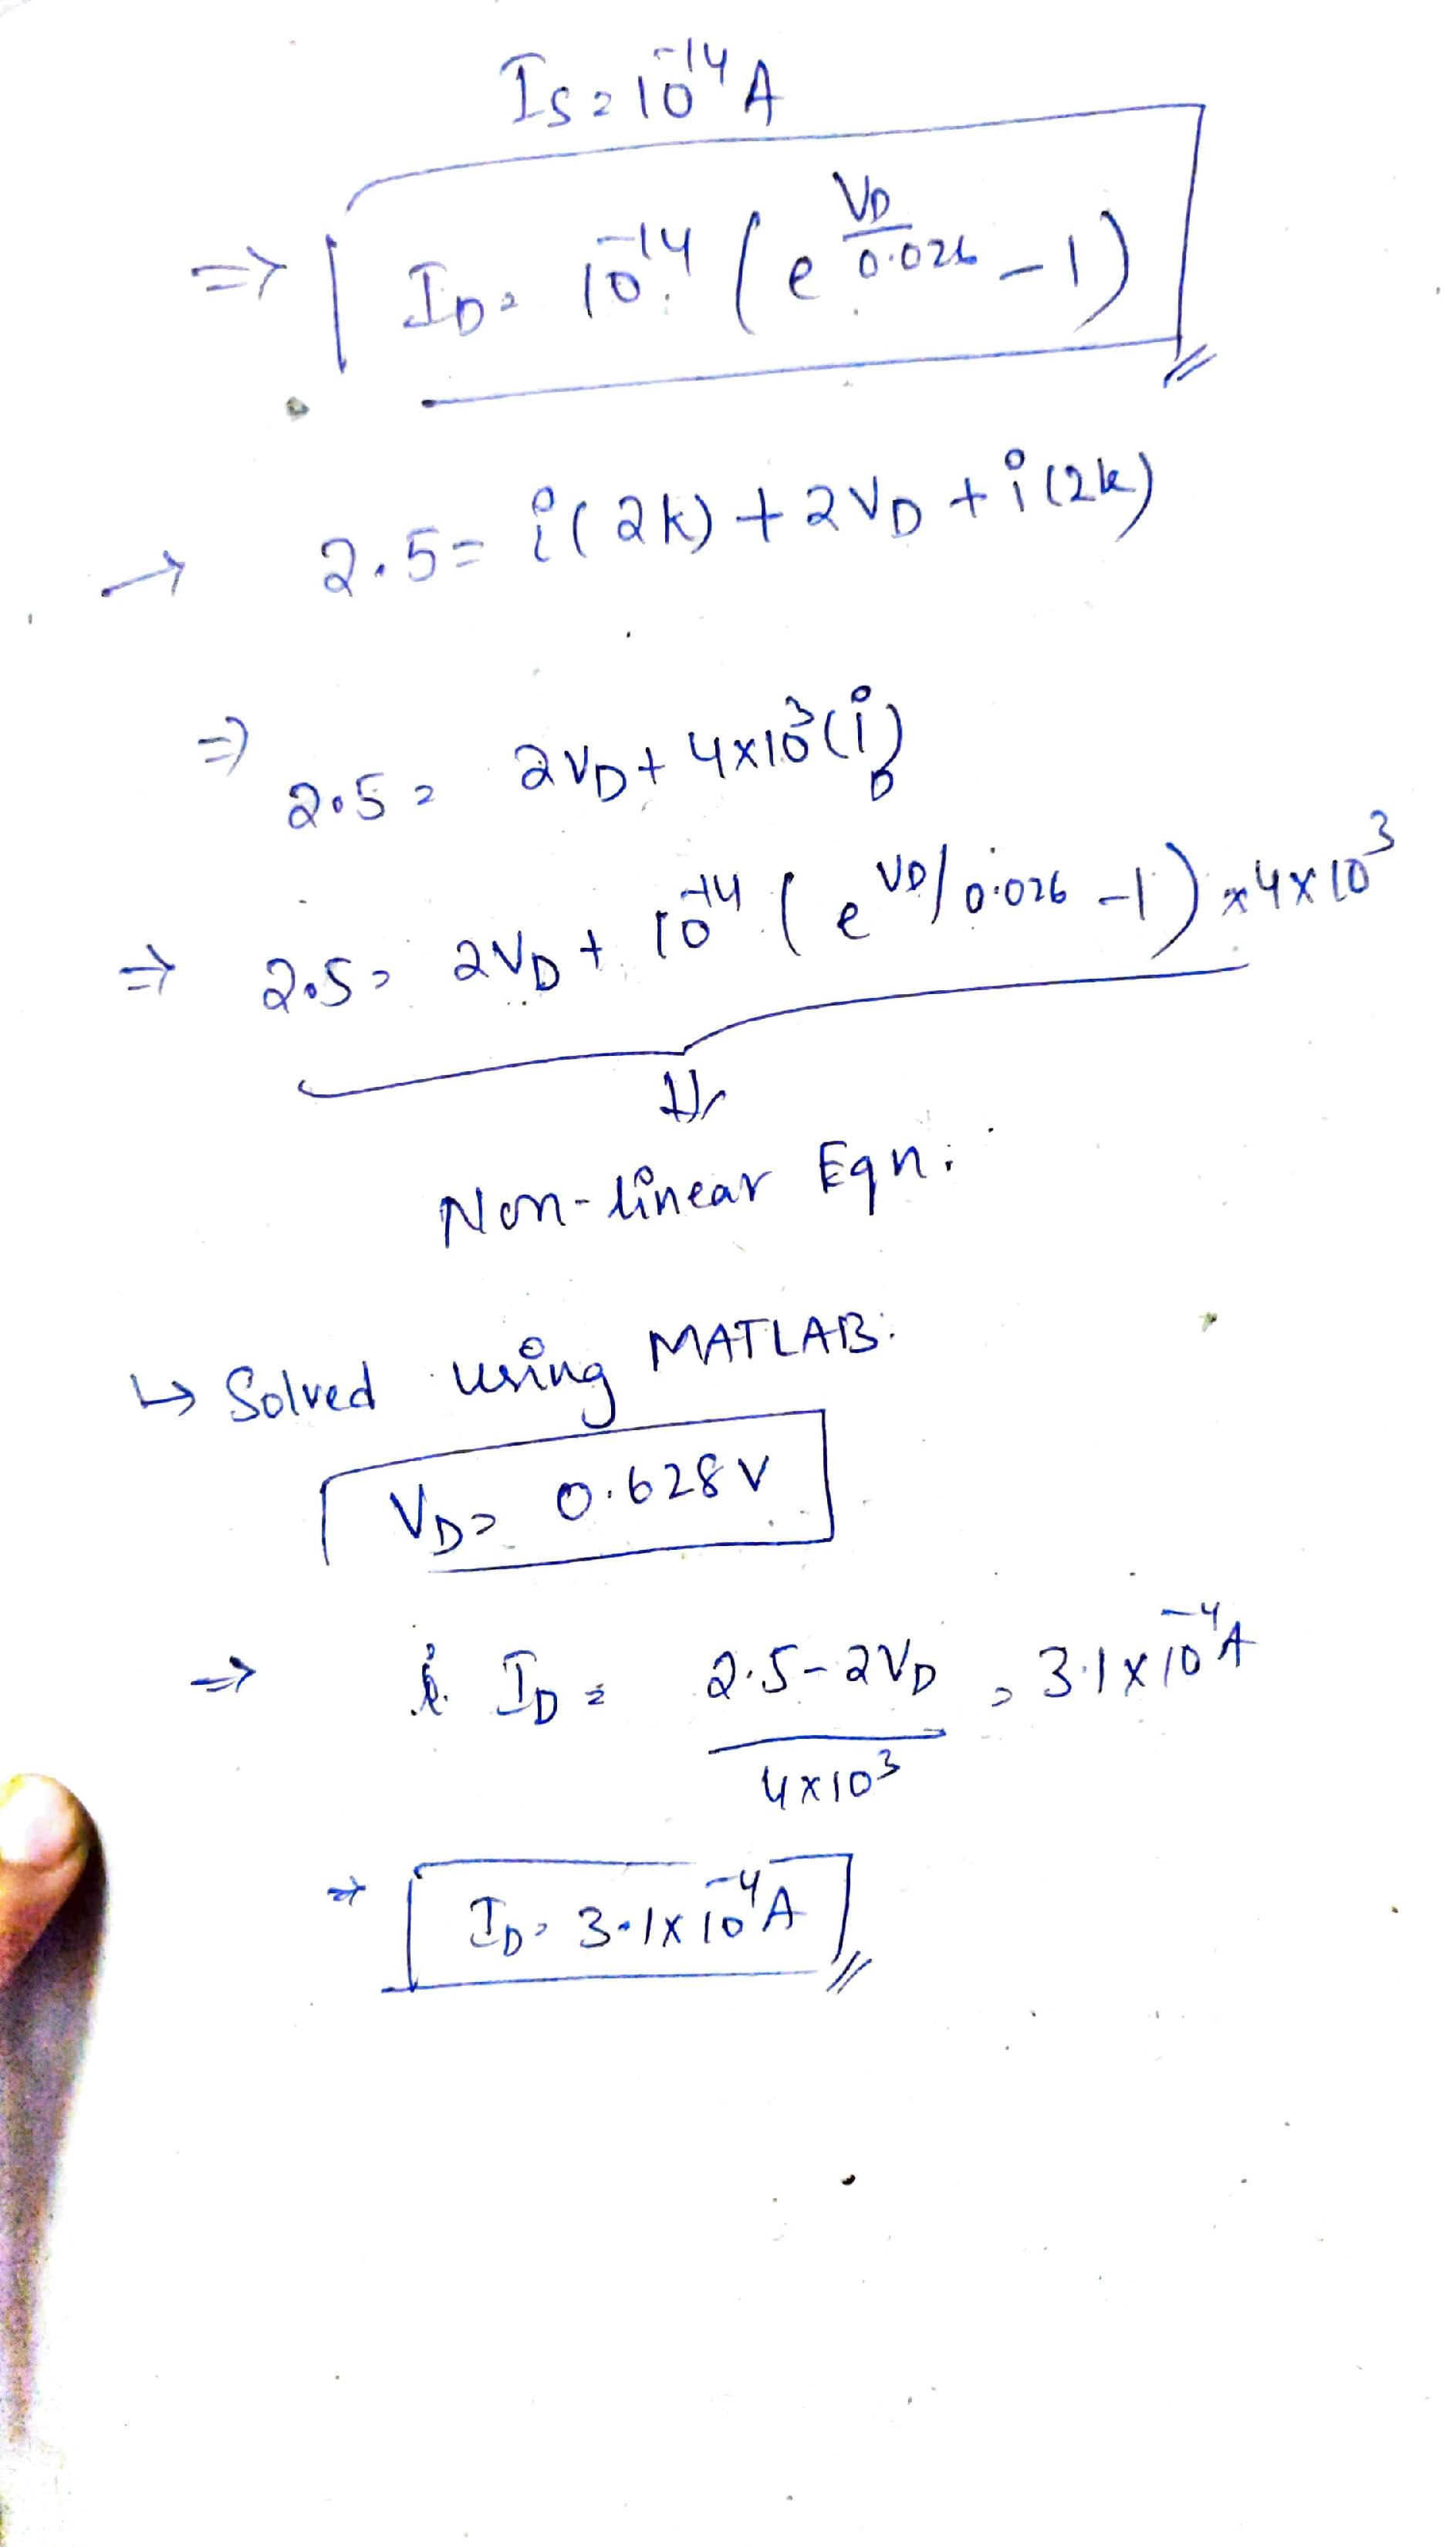 Is = 10^-14 A
=> ID = 10^-14 ( e^(VD/0.026) - 1 )
→ 2.5 = i(2k) + 2VD + i(2k)
=> 2.5 = 2VD + 4x10^3 (i)D
=> 2.5 = 2VD + 10^-14 ( e^VD/0.026 - 1 ) x 4x10^3
⇓
Non-linear Eqn.
↳ Solved using MATLAB:
VD = 0.628 V
=> ID = (2.5 - 2VD)/(4x10^3) = 3.1 x 10^-4 A
=> ID = 3.1x10^-4 A